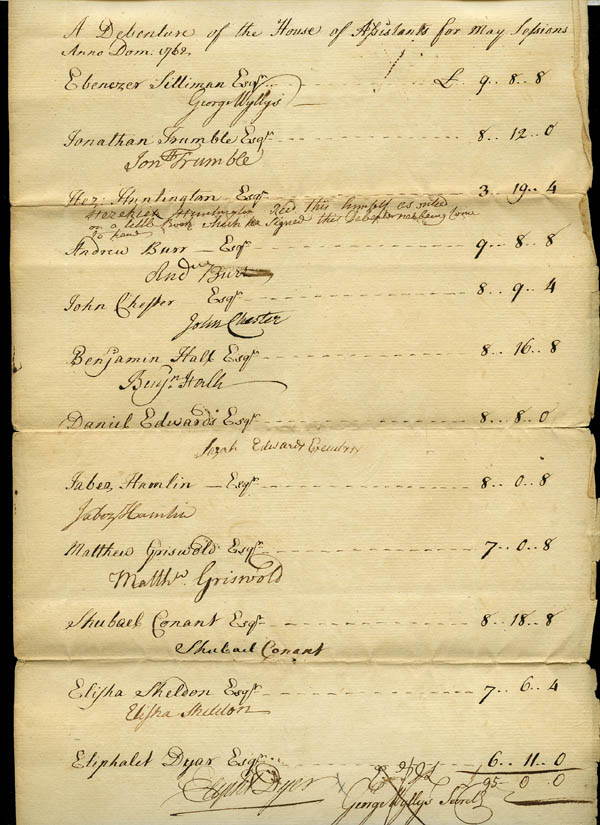 A Debenture of the House of Assistants for May Sessions
Anno Dom. 1762.
Ebenezer Silliman Esqr. £ 9.. 8.. 8
George Wyllys
Jonathan Trumble Esqr 8.. 12.. 0
Jonth Trumble
Hez. Huntington Esqr 3.. 19.. 4
Hezekiah Huntington Red this himself as
on a little Book which he signed this not being come
to hand
Andrew Burr — Esqr 9.. 8.. 8
Andw Burr
John Chester Esqr 8.. 9.. 4
John Chester
Benjamin Hall Esqr 8.. 16.. 8
Benjn Hall
Daniel Edwards Esqr 8.. 8.. 0
Sarah Edwards Executrix
Jabez Hamlin — Esqr 8.. 0.. 8
Jabez Hamlin
Matthew Griswold Esqr 7.. 0.. 8
Matthw Griswold
Shubael Conant Esqr 8.. 18.. 8
Shubael Conant
Elisha Sheldon Esqr 7.. 6.. 4
Elisha Sheldon
Eliphalet Dyar Esqr 6.. 11.. 0
Elipht Dyer
95.. 0.. 0
George Wyllys Secrety